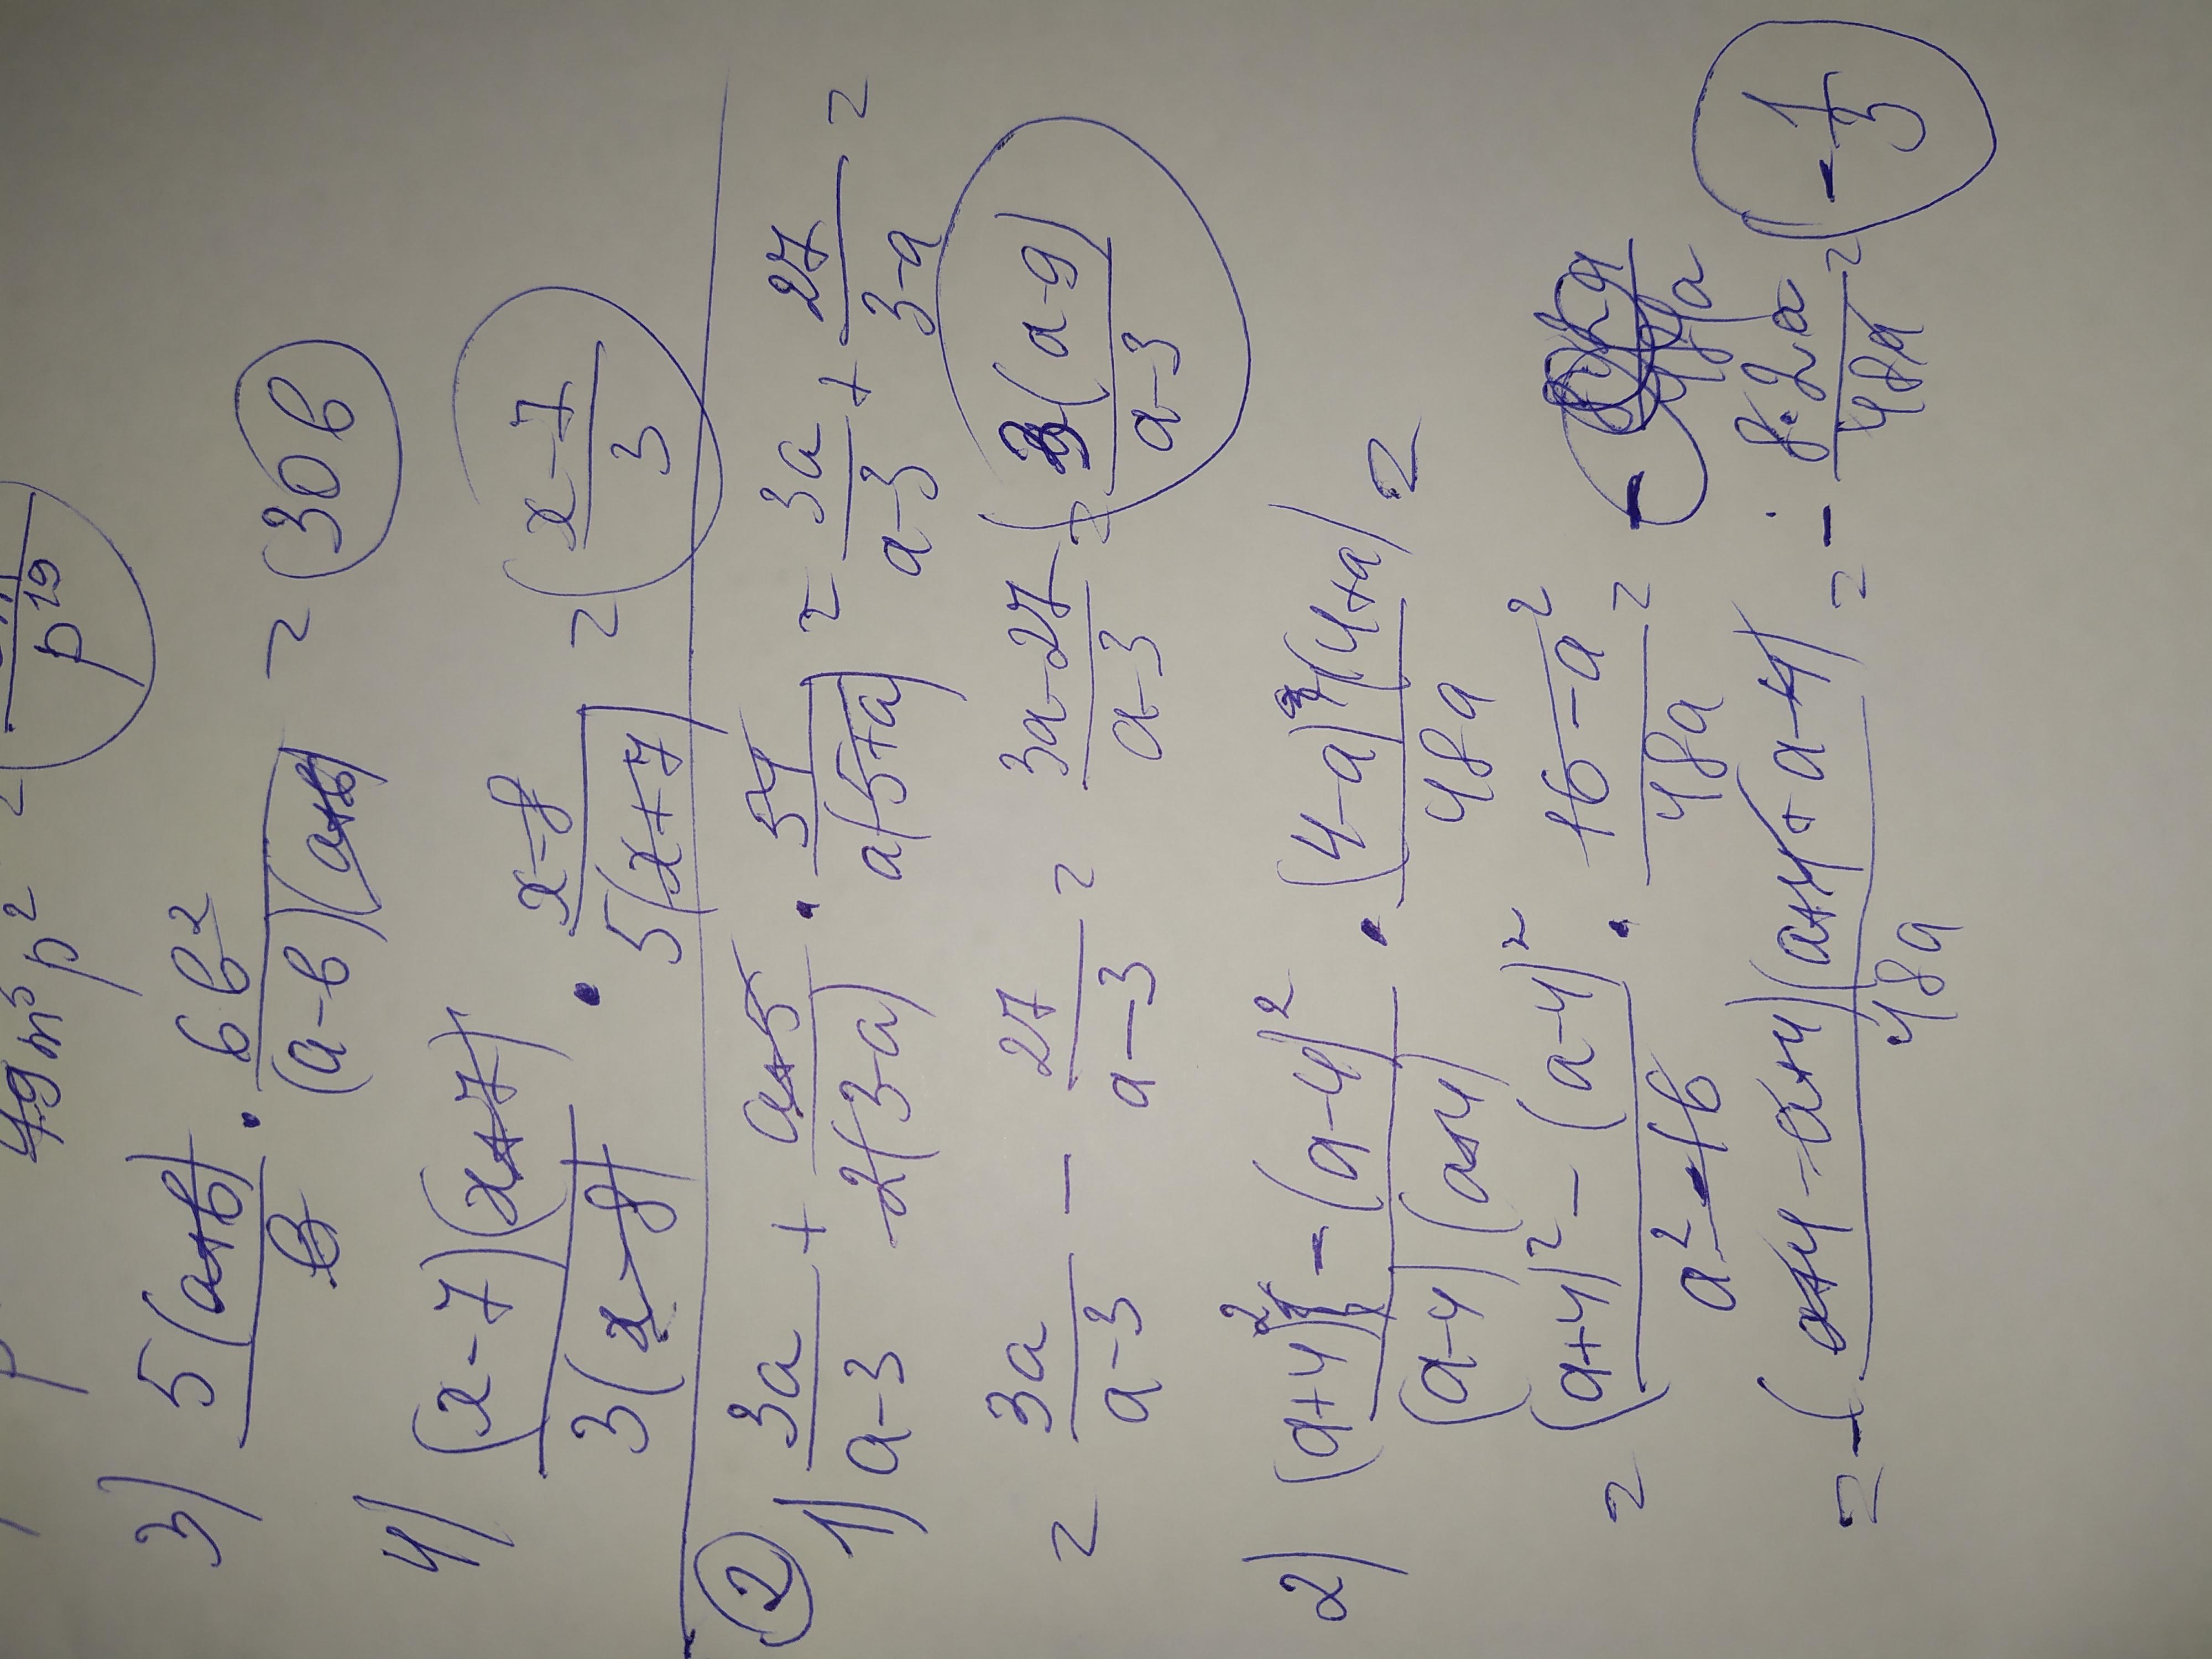 49m³p²
p¹⁹
3) 5(a+b)/b · 6b²/(a-b)(a+b) = 30b
4) (x-7)(x+7)/3(x-8) · x-8/5(x+7) = x-7/3
2
1) 3a/a-3 + a+5/2(3-a) · 54/a(5+a) = 3a/a-3 + 27/3-a =
= 3a/a-3 - 27/a-3 = 3a-27/a-3 = 3(a-9)/a-3
2) (a+4)² - (a-4)²/(a-4)(a+4) · (4-a)(4+a)/48a =
= (a+4)² - (a-4)²/a²-16 · 16-a²/48a =
= -(a+4-a+4)(a+4+a-4)/48a = - 8·2a/48a = -1/3